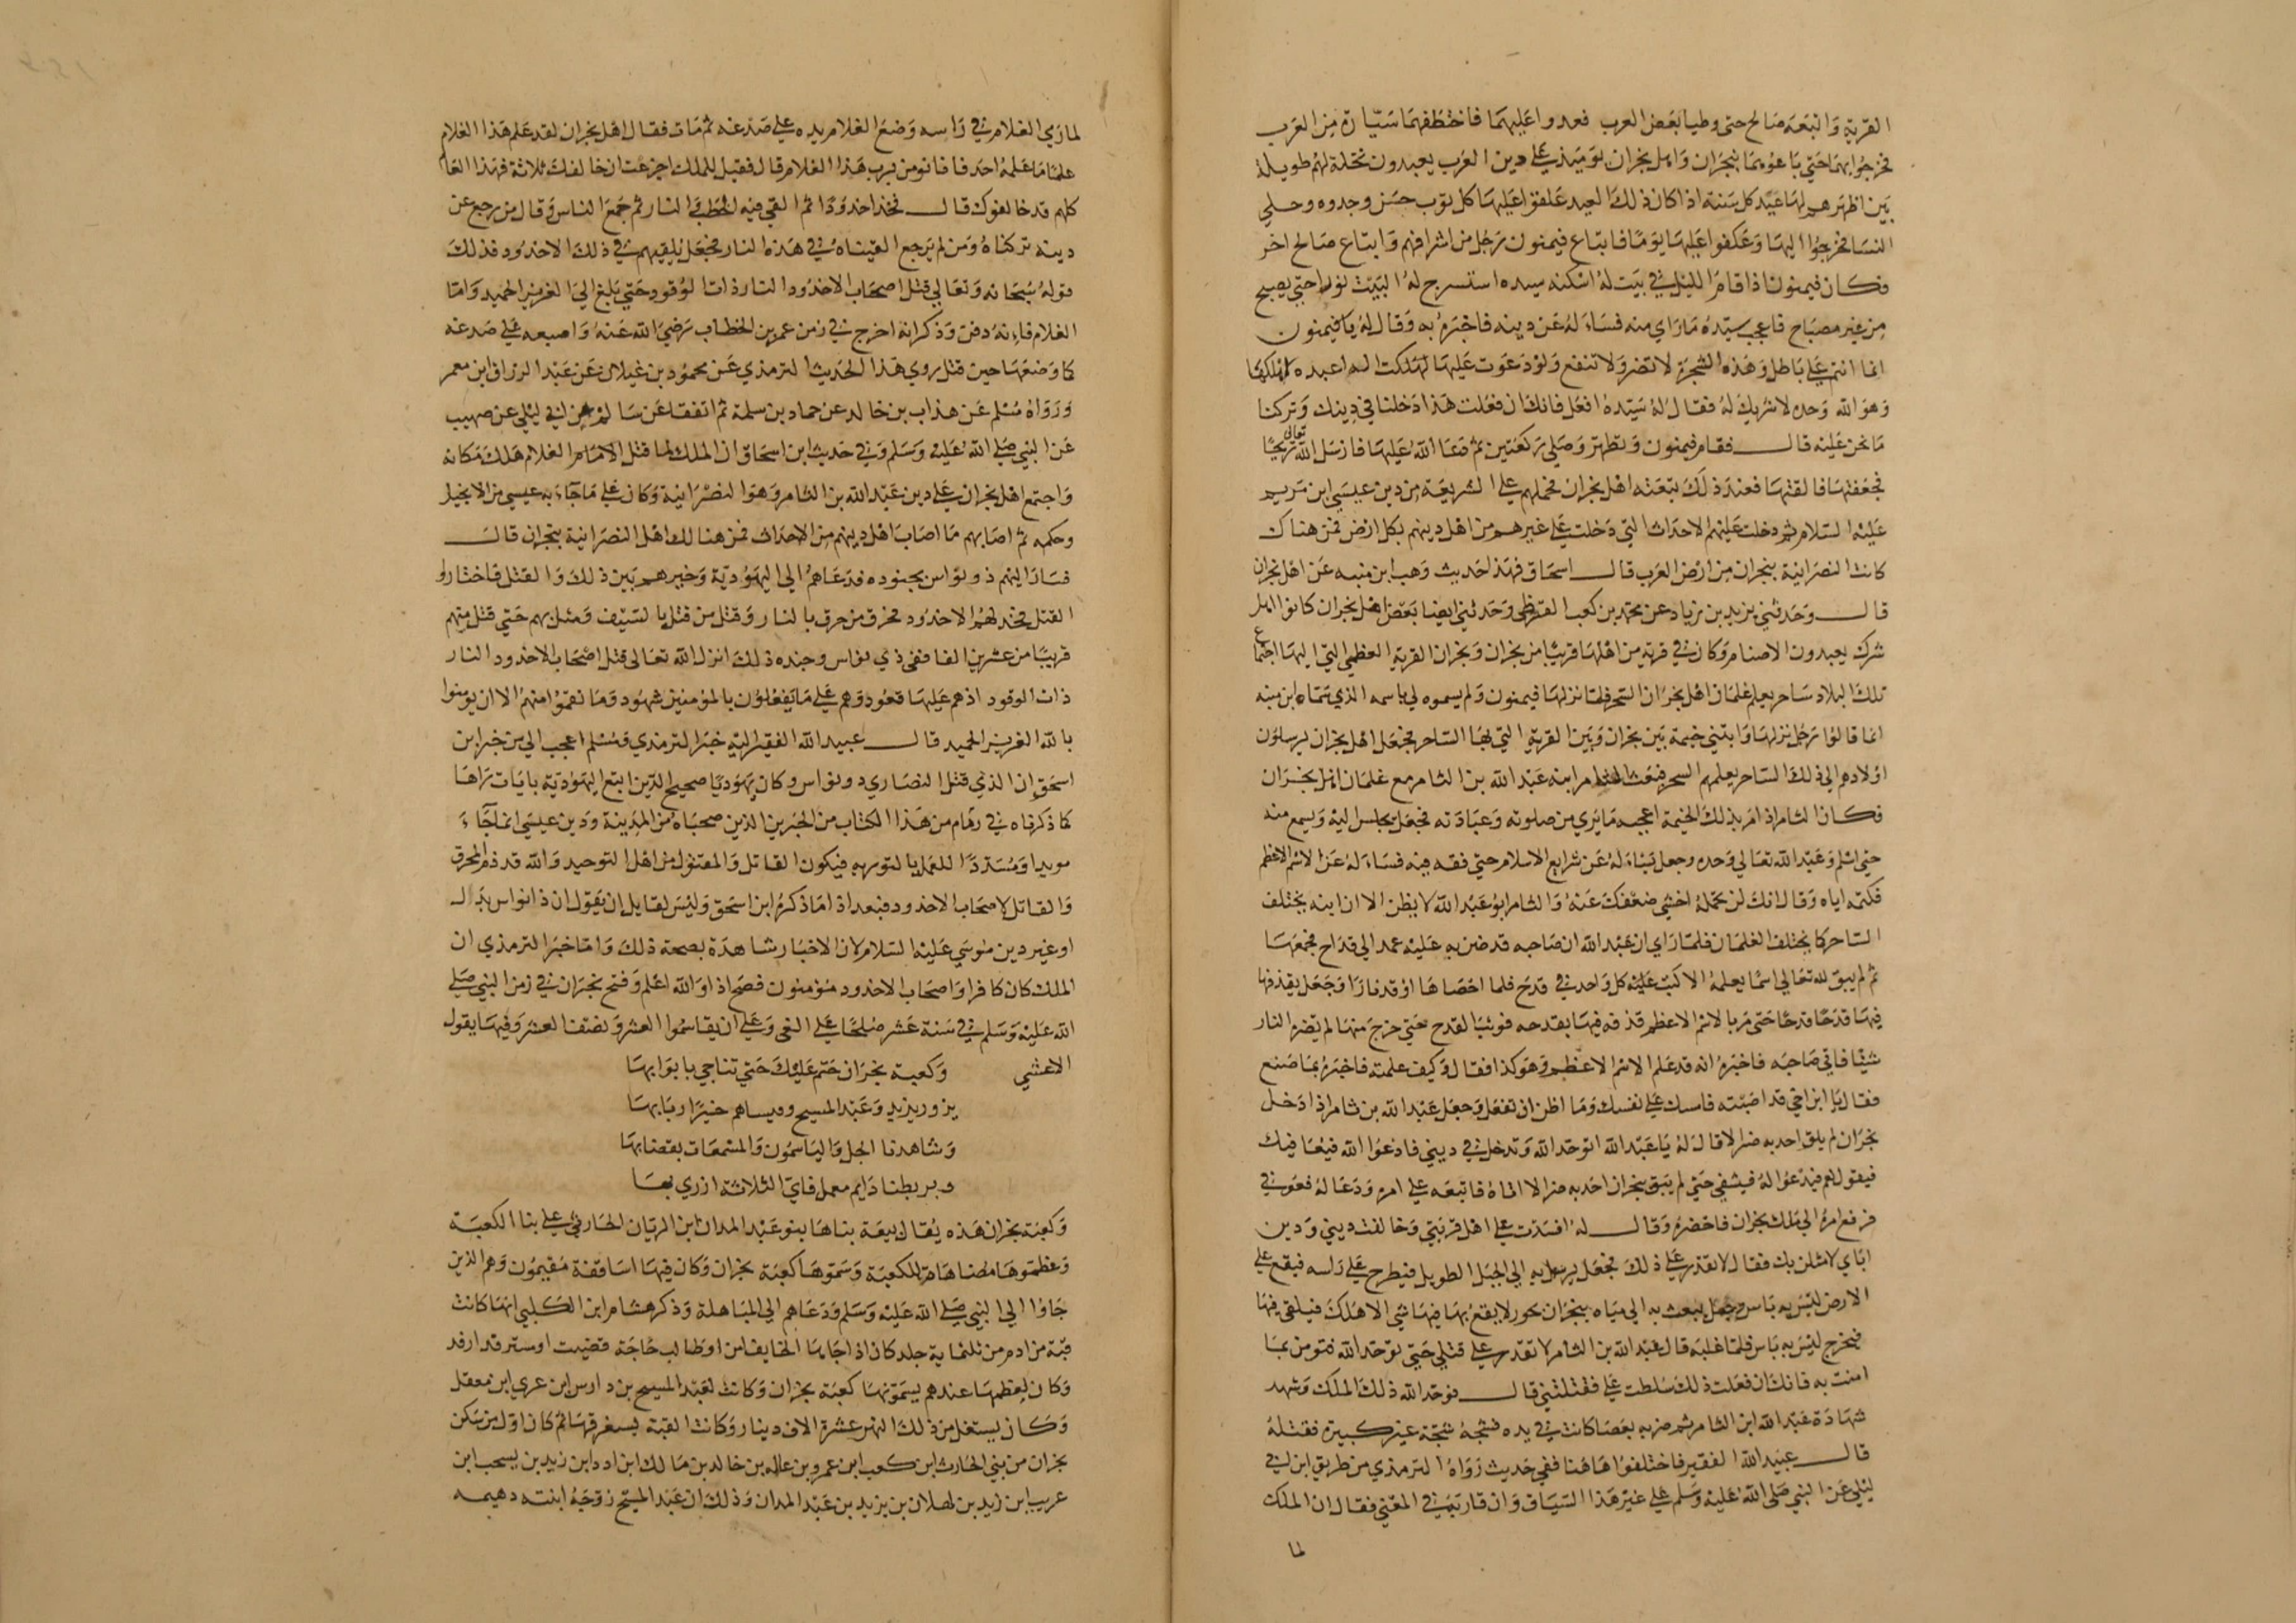 القرية واتبعه صالح حتى وطيا بعض العرب فعدوا عليهما فاختطفهما سيارة من العرب
فخرجوا بهما حتى باعوهما بنجران واهل نجران يوميذ على دين العرب يعبدون نخلة لهم طويلة
بين اظهرهم لها عيد كل سنة اذا كان ذلك العيد علقوا عليها كل ثوب حسن وجدوه وحلي
النسا فخرجوا اليها وعكفوا عليها يوما فابتاع فيميون رجل من اشرافهم وابتاع صالح اخر
فكان فيميون اذا قام الليل في بيت له اسكنه سيده استسرج له البيت نورا حتى يصبح
من غير مصباح فاعجب سيده ما راى منه فساله عن دينه فاخبره به وقال له يا فيميون
انما انتم على باطل وهذه الشجرة لا تضر ولا تنفع ولو دعوت عليها لهلكت الذي اعبده لاهلكها
وهو الله وحده لا شريك له فقال له سيده افعل فانك ان فعلت هذا دخلنا في دينك وتركنا
ما نحن عليه قال فقام فيميون وتطهر وصلى ركعتين ثم دعا الله عليها فارسل الله تعالى ريحا
فجعفتها فالقتها فعند ذلك تبعته اهل نجران فحملهم على الشريعة من دين عيسى ابن مريم
عليه السلام ثم دخلت عليهم الاحداث التي دخلت على غيرهم من اهل دينهم بكل ارض فمن هناك
كانت النصرانية بنجران من ارض العرب قال اسحاق فهذا حديث وهب ابن منبه عن اهل نجران
قال وحدثني يزيد بن زياد عن محمد بن كعب القرظي وحدثني ايضا بعض اهل نجران كانوا اهل
شرك يعبدون الاصنام وكان في قرية من اهلها قريبا من نجران ونجران القرية العظمى التي اليها اجتماع
تلك البلاد ساحر يعلم غلمان اهل نجران السحر فلما نزلها فيميون ولم يسموه لي باسمه الذي سماه ابن منبه
انما قالوا رجل نزلها وابتنى خيمة بين نجران وبين القرية التي بها الساحر فجعل اهل نجران يرسلون
اولادهم الى ذلك الساحر يعلمهم السحر فبعث الثامر ابنه عبد الله بن الثامر مع غلمان اهل نجران
فكان الثامر اذا مر بذلك الخيمة اعجبه ما يرى من صلوته وعبادته فجعل يجلس اليه ويسمع منه
حتى اسلم وعبد الله تعالى وحده وجعل يساله عن شرايع الاسلام حتى فقه فيه فساله عن الاسم الاعظم
فكتمه اياه وقال انك لن تحمله اخشى ضعفك عنه والثامر ابو عبد الله لا يظن الا ان ابنه يختلف
الساحر كما يختلف الغلمان فلما راى ان عبد الله ان صاحبه قد ضن به عليه عمد الى قداح فجمعها
ثم لم يبق لله تعالى اسما يعلمه الا كتب عليه كل واحد في قدح فلما احصاها اوقد نارا وجعل يقذفها
فيها قدحا قدحا حتى مر بالاسم الاعظم قذفه فيها بقدحه فوثب القدح حتى خرج منها لم يضره النار
شيئا فاتى صاحبه فاخبره انه قد علم الاسم الاعظم وهو كذا فقال وكيف علمته فاخبره بما صنع
فقال يا ابن اخي قد اصبته فامسك على نفسك وما اظن ان تفعل وجعل عبد الله بن ثامر اذا دخل
نجران لم يلق احد به ضر الا قال له يا عبد الله اتوحد الله وتدخل في ديني فادعوا الله فيعافيك
فيقول نعم فيدعوا له فيشفى حتى لم يبق بنجران احد به ضر الا اتاه فاتبعه على امره ودعا له فعوفي
فرفع امره الى ملك نجران فاحضره وقال له افسدت على اهل قريتي وخالفت ديني ودين
اباي لامثلن بك فقال لا تقدر على ذلك فجعل يرسل به الى الجبل الطويل فيطرح على راسه فيقع على
الارض ليس به باس وجعل يبعث به الى مياه بنجران بحور لا يقع بها فيها شي الا هلك فيلقى فيها
فيخرج ليس به باس فلما غلبه قال عبد الله بن الثامر لا تقدر على قتلي حتى توحد الله فتومن بما
امنت به فانك ان فعلت ذلك سلطت على فقتلتني قال فوحد الله ذلك الملك وشهد
شهادة عبد الله ابن الثامر ثم ضربه بعصا كانت في يده فشجه شجة غير كبيرة فقتله
قال عبيد الله الفقير فاختلفوا هاهنا ففي حديث رواه الترمذي من طريق ابن ابي
ليلى عن النبي صلى الله عليه وسلم على غير هذا السياق وان قاربه في المعنى فقال ان الملك
لما
لما رمى الغلام في راسه وضع الغلام يده على صدغه ثم مات فقال اهل نجران لقد علم هذا الغلام
علما ما علمه احد فانا نومن برب هذا الغلام قال فقيل للملك اجزعت ان خالفك ثلاثة فهذا العالم
كلهم قد خالفوك قال فخد اخدودا ثم القى فيه الحطب والنار ثم جمع الناس وقال من رجع عن
دينه تركناه ومن لم يرجع القيناه في هذه النار فجعل يلقيهم في ذلك الاخدود فذلك
قوله سبحانه وتعالى قتل اصحاب الاخدود النار ذات الوقود حتى بلغ الى العزيز الحميد واما
الغلام فانه دفن وذكر انه اخرج في زمن عمر بن الخطاب رضي الله عنه واصبعه على صدغه
كما وضعها حين قتل روي هذا الحديث الترمذي عن محمود بن غيلان عن عبد الرزاق ابن معمر
ورواه مسلم عن هذاب بن خالد عن حماد بن سلمة ثم اتفقا عن سالم عن ابي ليلى عن صهيب
عن النبي صلى الله عليه وسلم وفي حديث ابن اسحاق ان الملك لما قتل الامام الغلام هلك مكانه
واجتمع اهل نجران على دين عبد الله بن الثامر وهو النصرانية وكان على ما جاء به عيسى من الانجيل
وحكمه ثم اصابهم ما اصاب اهل دينهم من الاحداث فمن هنالك اهل النصرانية بنجران قال
فسار اليهم ذو نواس بجنوده فدعاهم الى اليهودية وخيرهم بين ذلك والقتل فاختاروا
القتل فخد لهم الاخدود فحرق من حرق بالنار وقتل من قتل بالسيف ومثل بهم حتى قتل منهم
قريبا من عشرين الفا ففى ذي نواس وجنده ذلك انزل الله تعالى قتل اصحاب الاخدود النار
ذات الوقود اذ هم عليها قعود وهم على ما يفعلون بالمؤمنين شهود وما نقموا منهم الا ان يومنوا
بالله العزيز الحميد قال عبيد الله الفقير اليه خبر الترمذي ومسلم اعجب الى من خبر ابن
اسحق ان الذي قتل النصارى ذو نواس وكان يهوديا صحيح الدين اتبع اليهودية بايات راها
كما ذكرناه في رئام من هذا الكتاب من الحبرين الذين صحباه من المدينة ودين عيسى انما جاء
مويدا ومسددا للعمل بالتوريه فيكون القاتل والمقتول من اهل التوحيد والله قد ذم المحرق
والقاتل لاصحاب الاخدود فبعد اذا ما ذكره ابن اسحق وليس لقايل ان يقول ان ذا نواس بدل
او غير دين موسى عليه السلام لان الاخبار شاهدة بصحة ذلك واما خبر الترمذي ان
الملك كان كافرا واصحاب الاخدود مؤمنون فصح اذا والله اعلم وفتح نجران في زمن النبي صلى
الله عليه وسلم في سنة عشر صلحا على الفي وعلى ان يقاسموا العشر ونصف العشر وفيها يقول
الاعشى وكعبة نجران حتم عليك حتى تناجى بابوابها
يزور يزيد وعبد المسيح وقيساهم خير اربابها
وشاهدنا الجل والياسمون والمسمعات بقصابها
وبربطنا دايم معمل فاي الثلاثة ازرى بها
وكعبة نجران هذه يقال بيعة بناها بنو عبد المدان ابن الريان الحارثي على بنا الكعبة
وعظموها مضاهاة للكعبة وسموها كعبة نجران وكان فيها اساقفة مقيمون وهم الذين
جاوا الى النبي صلى الله عليه وسلم ودعاهم الى المباهلة وذكر هشام ابن الكلبي انها كانت
قبة من ادم من ثلثماية جلد كان اذا جاها الخايف امن او طالب حاجة قضيت او مسترفد ارفد
وكان لعظمها عندهم يسمونها كعبة نجران وكانت لعبد المسيح بن دارس ابن عربي ابن معقل
وكان يستغل من ذلك النهر عشرة الاف دينار وكانت القبة تستغرقها ثم كان اول من سكن
نجران من بني الحارث ابن كعب ابن عمرو بن عله بن خالد بن مالك ابن ادد ابن زيد بن يسحب ابن
عريب ابن زيد بن كهلان بن يزيد بن عبد المدان وذلك ان عبد المسيح زوجه ابنته دهيمه